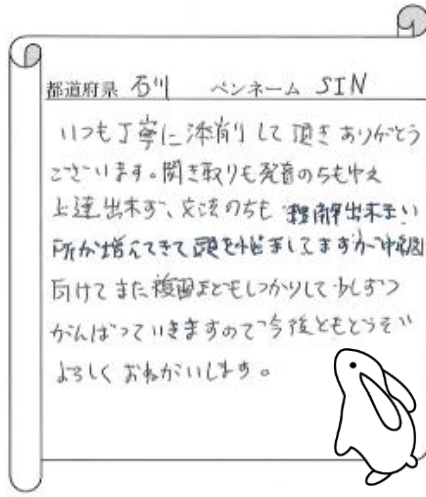 都道府県 石川 ペンネーム SIN
いつも丁寧に添削して頂きありがとう
ございます。聞き取りも発音のちも中々
上達出来ず、文法のちも 理解出来ない
所が増えてきて頭を悩ましてますが
向けてまた復習などもしっかりして少しずつ
がんばっていきますので今後ともどうぞ
よろしくおねがいします。